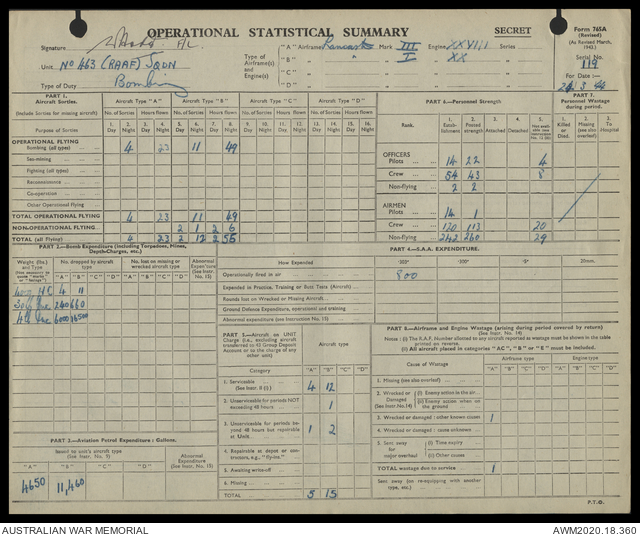 OPERATIONAL STATISTICAL SUMMARY
SECRET
Form 765A
(Revised)
(As Revised March, 1943.)
Signature
Unit: No 463 (RAAF) Sqdn
Type of Duty Bombing
Type of Airframe(s) and Engine(s):
"A" Airframe Lancaster Mark III Engine XXVIII Series
"B" " " I " XX "
"C" " " " "
"D" " " " "
Serial No. 119
For Day :—
PART 1.
Aircraft Sorties.
(Include Sorties for missing aircraft)
Aircraft Type "A" Aircraft Type "B" Aircraft Type "C" Aircraft Type "D"
No. of Sorties Hours flown No. of Sorties Hours flown No. of Sorties Hours flown No. of Sorties Hours flown
Purpose of Sorties
1. 2. 3. 4. 5. 6. 7. 8. 9. 10. 11. 12. 13. 14. 15. 16.
Day Night Day Night Day Night Day Night Day Night Day Night Day Night Day Night
OPERATIONAL FLYING
Bombing (all types) 4 23 11 49
Sea-mining
Fighting (all types)
Reconnaissance
Co-operation
Other Operational Flying
TOTAL OPERATIONAL FLYING 4 23 11 49
NON-OPERATIONAL FLYING 2 1 2 6
TOTAL (all Flying) 4 23 2 12 2 55
PART 6.—Personnel Strength
PART 7.
Personnel Wastage during period.
Rank.
1. Establishment
2. Posted strength
3. Attached
4. Detached
1. Killed or Died.
2. Missing (see also overleaf)
3. To Hospital
OFFICERS
Pilots 14 22 4
Crew 54 43 8
Non-flying 2 2
AIRMEN
Pilots 14 1
Crew 120 113 20
Non-flying 242 260 29
PART 2.—Bomb Expenditure (including Torpedoes, Mines, Depth-Charges, etc.)
Weight (lbs.) and Type
No. dropped by aircraft type
No. lost on missing or wrecked aircraft type
Abnormal Expenditure (See Instr. 13)
"A" "B" "C" "D" "A" "B" "C" "D"
4000 HC 4 11
30lb Inc 240 660
4lb Inc 6000 16500
PART 4.—S.A.A. EXPENDITURE.
How Expended
·300" ·303" ·5" 20mm.
Operationally fired in air 800
Expended in Practice, Training or Butt Tests (Aircraft)
Rounds lost on Wrecked or Missing Aircraft
Ground Defence Expenditure, operational and training
Abnormal expenditure (see Instruction No. 13)
PART 5.—Aircraft on UNIT Charge (i.e., excluding aircraft transferred to 43 Group Deposit Account or to the charge of any other unit)
Aircraft type
Category "A" "B" "C" "D"
1. Serviceable (See Instr. 8 (i).) 4 12
2. Unserviceable for periods NOT exceeding 48 hours 1
3. Unserviceable for periods beyond 48 hours but repairable at Unit. 1 2
4. Repairable at depot or contractors, e.g., "fly-ins."
5. Awaiting write-off
6. Missing
TOTAL 5 15
PART 8.—Airframe and Engine Wastage (arising during period covered by return)
(See Instr. No. 14)
Notes : (i) The R.A.F. Number allotted to any aircraft reported as wastage must be shown in the table printed on reverse.
(ii) All aircraft placed in categories "AC", "B" or "E" must be included.
Cause of Wastage
Airframe type Engine type
"A" "B" "C" "D" "A" "B" "C" "D"
1. Missing (see also overleaf)
2. Wrecked or Damaged (See Instr. No.14)
(i) Enemy action in the air
(ii) Enemy action when on the ground
3. Wrecked or damaged : other known causes 1
4. Wrecked or damaged : cause unknown
5. Sent away for major overhaul
(i) Time expiry
(ii) Other causes
TOTAL wastage due to service 1
Sent away (on re-equipping with another type, etc.)
PART 3.—Aviation Petrol Expenditure : Gallons.
Issued to unit's aircraft type (See Instr. No. 9)
Abnormal Expenditure (See Instr. No. 13)
"A" "B" "C" "D"
4650 11,460
P.T.O.
AUSTRALIAN WAR MEMORIAL
AWM2020.18.360